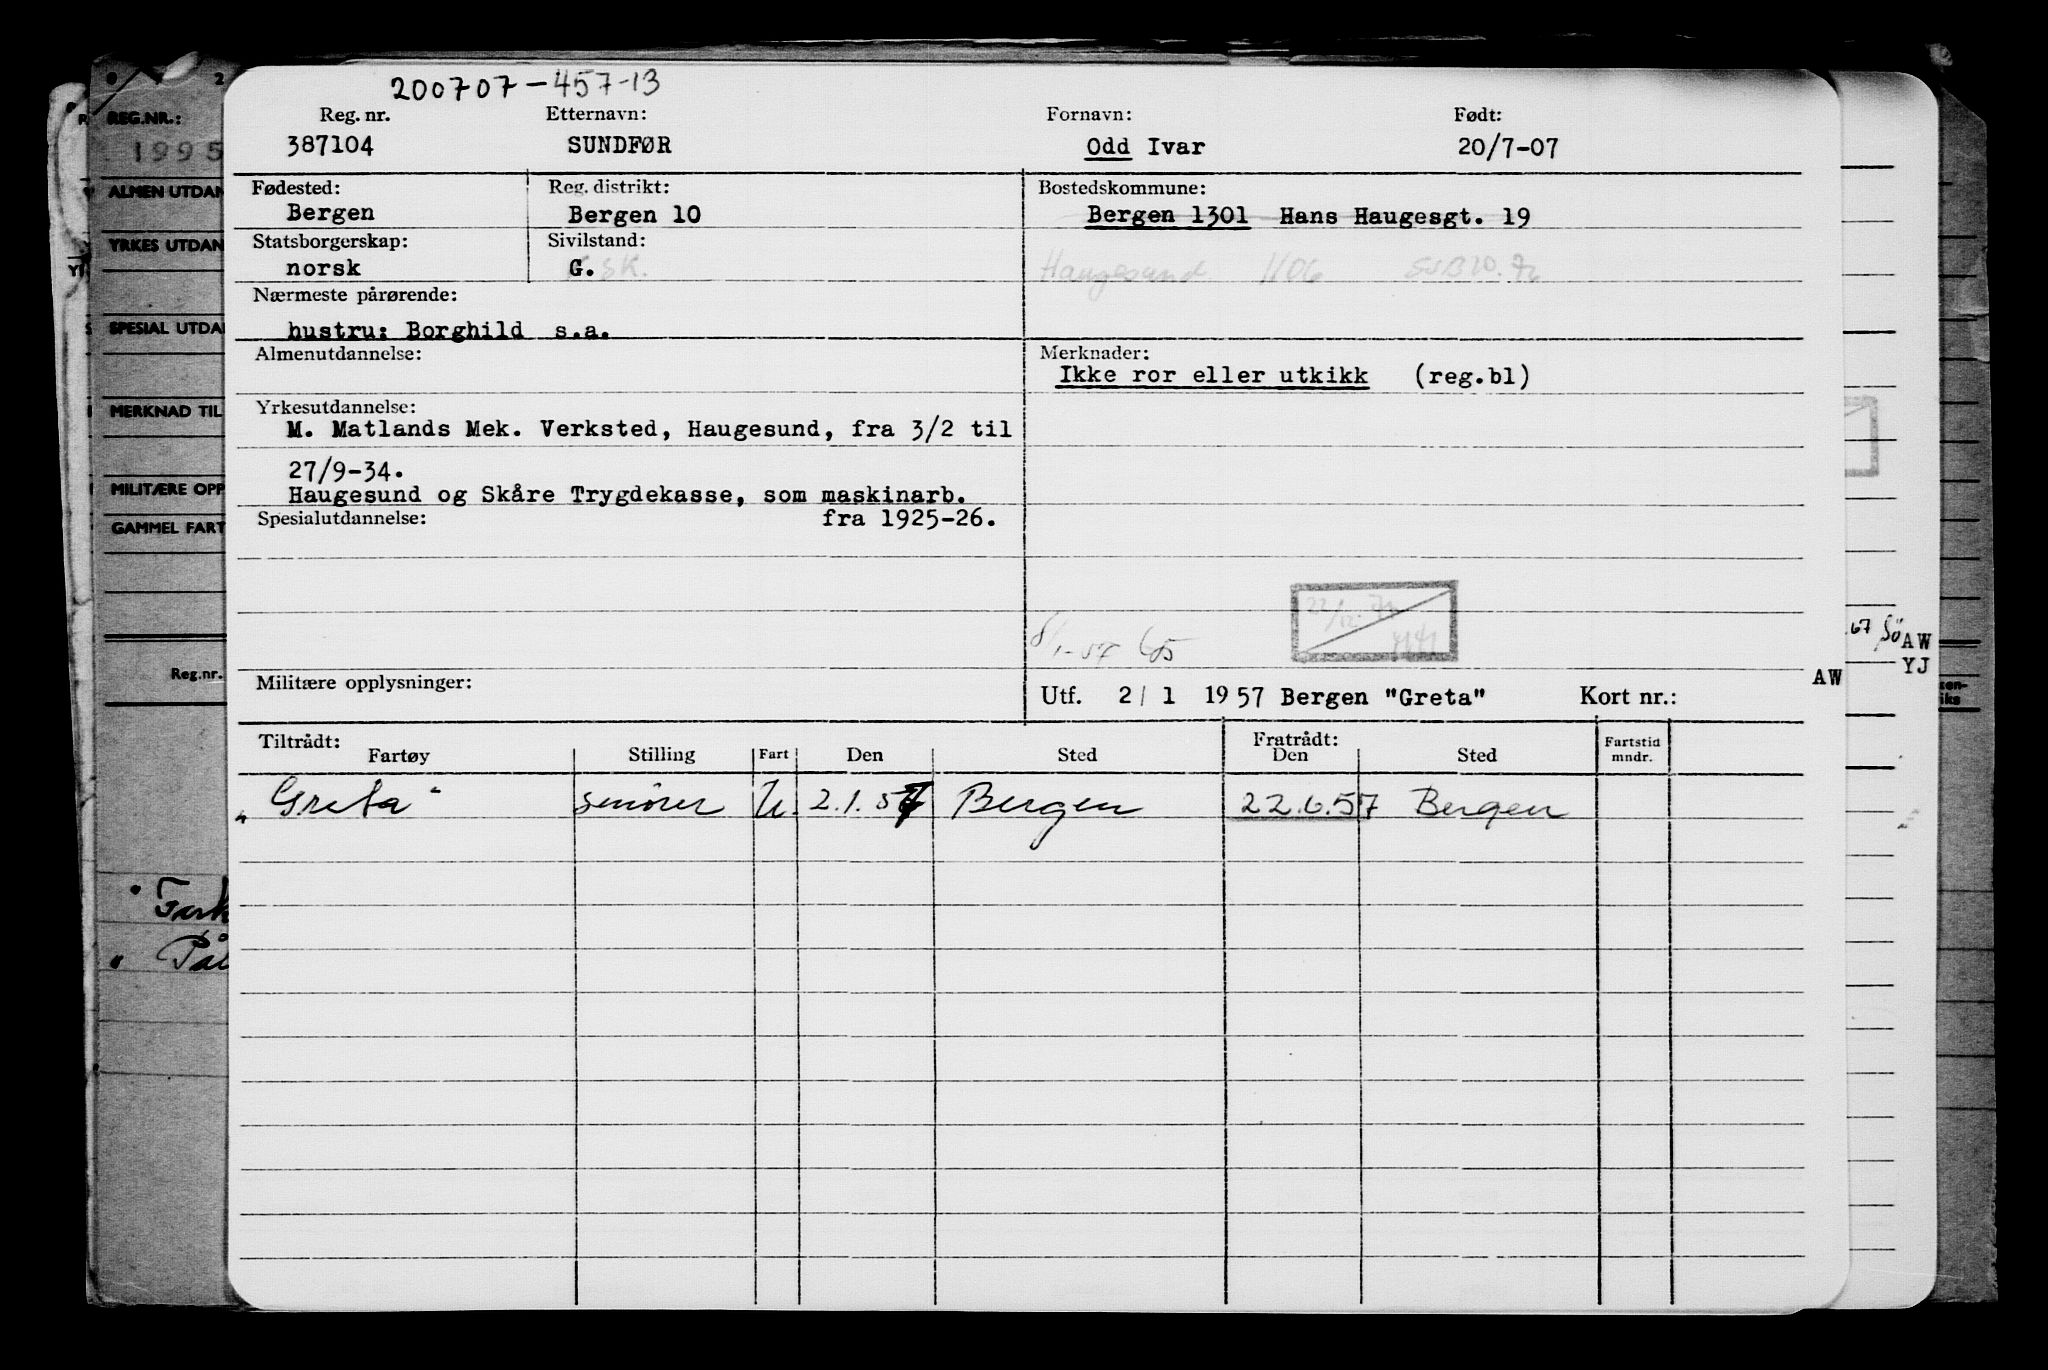 200707-457-13
Reg. nr. Etternavn: Fornavn: Født:
387104 SUNDFØR Odd Ivar 20/7-07
Fødested: Reg. distrikt: Bostedskommune:
Bergen Bergen 10 Bergen 1301 Hans Haugesgt. 19
Statsborgerskap: Sivilstand:
norsk G. SK. Haugesund 1106
Nærmeste pårørende:
hustru: Borghild s.a.
Almenutdannelse: Merknader:
Ikke ror eller utkikk (reg.bl)
Yrkesutdannelse:
M. Matlands Mek. Verksted, Haugesund, fra 3/2 til
27/9-34.
Haugesund og Skåre Trygdekasse, som maskinarb.
Spesialutdannelse: fra 1925-26.
8/1-57
Militære opplysninger: Utf. 2/1 1957 Bergen "Greta" Kort nr.:
Tiltrådt: Fratrådt:
Fartøy Stilling Fart Den Sted Den Sted Fartstid mndr.
"Greta" smører U. 2.1.57 Bergen 22.6.57 Bergen
REG.NR.:
1995
ALMEN UTDAN
YRKES UTDAN
SPESIAL UTDA
MERKNAD TIL
MILITÆRE OPP
GAMMEL FART
Reg.nr.
67 Sö AW
YJ
AW